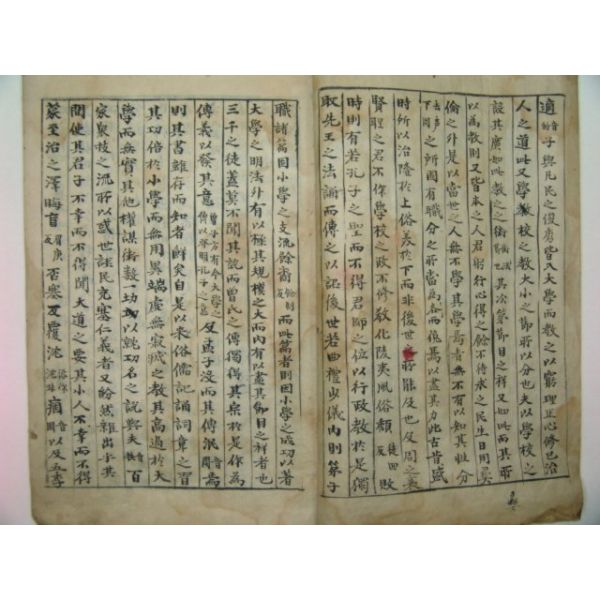 適音的子與凡民之俊秀皆入大學而教之以窮理正心修己治
人之道此又學校之教大小之節所以分也夫以學校之
設其廣如此教之之術其次第節目之詳又如此而其所
以爲教則又皆本之人君躬行心得之餘不待求之民生日用彛
倫之外是以當世之人無不學其學焉者無不有以知其性分
之所固有職分之所當爲各而俛焉以盡其力此古昔盛
時所以治隆於上俗美於下而非後世之所能及也及周之衰
賢聖之君不作學校之政不修敎化陵夷風俗頹徒回反敗
時則有若孔子之聖而不得君師之位以行政教於是獨
取先王之法誦而傳之以詔後世若曲禮少儀內則弟子
職諸篇固小學之支流餘裔而此篇者則因小學之成功以著
大學之明法外有以極其規模之大而內有以盡其節目之詳者也
三千之徒蓋莫不聞其說而曾氏之傳獨得其宗於是作爲
傳義以發其意及孟子沒而其傳泯焉
則其書雖存而知者鮮矣自是以來俗儒記誦詞章之習
其功倍於小學而無用異端虛無寂滅之教其高過於大
學而無實其他權謀術數一切以就功名之說與夫百
家衆技之流所以惑世誣民充塞仁義者又紛然雜出乎其
間使其君子不幸而不得聞大道之要其小人不幸而不得
蒙至治之澤晦盲眉庚反否塞反覆沈痼音固以及五季